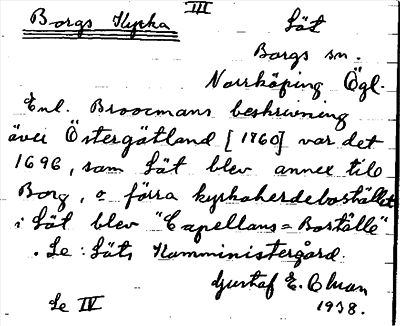 III
Borgs Kyrka Löt
Borgs sn.
Norrköping Ögl.
Enl. Broocmans beskrivning
över Östergötland [1760] var det
1696, som Löt blev annex till
Borg, o förra kyrkoherdebostället
i Löt blev "Capellans=Boställe"
. Se: Löts Komministergård.
Gustaf E. Olson
Se IV 1938.